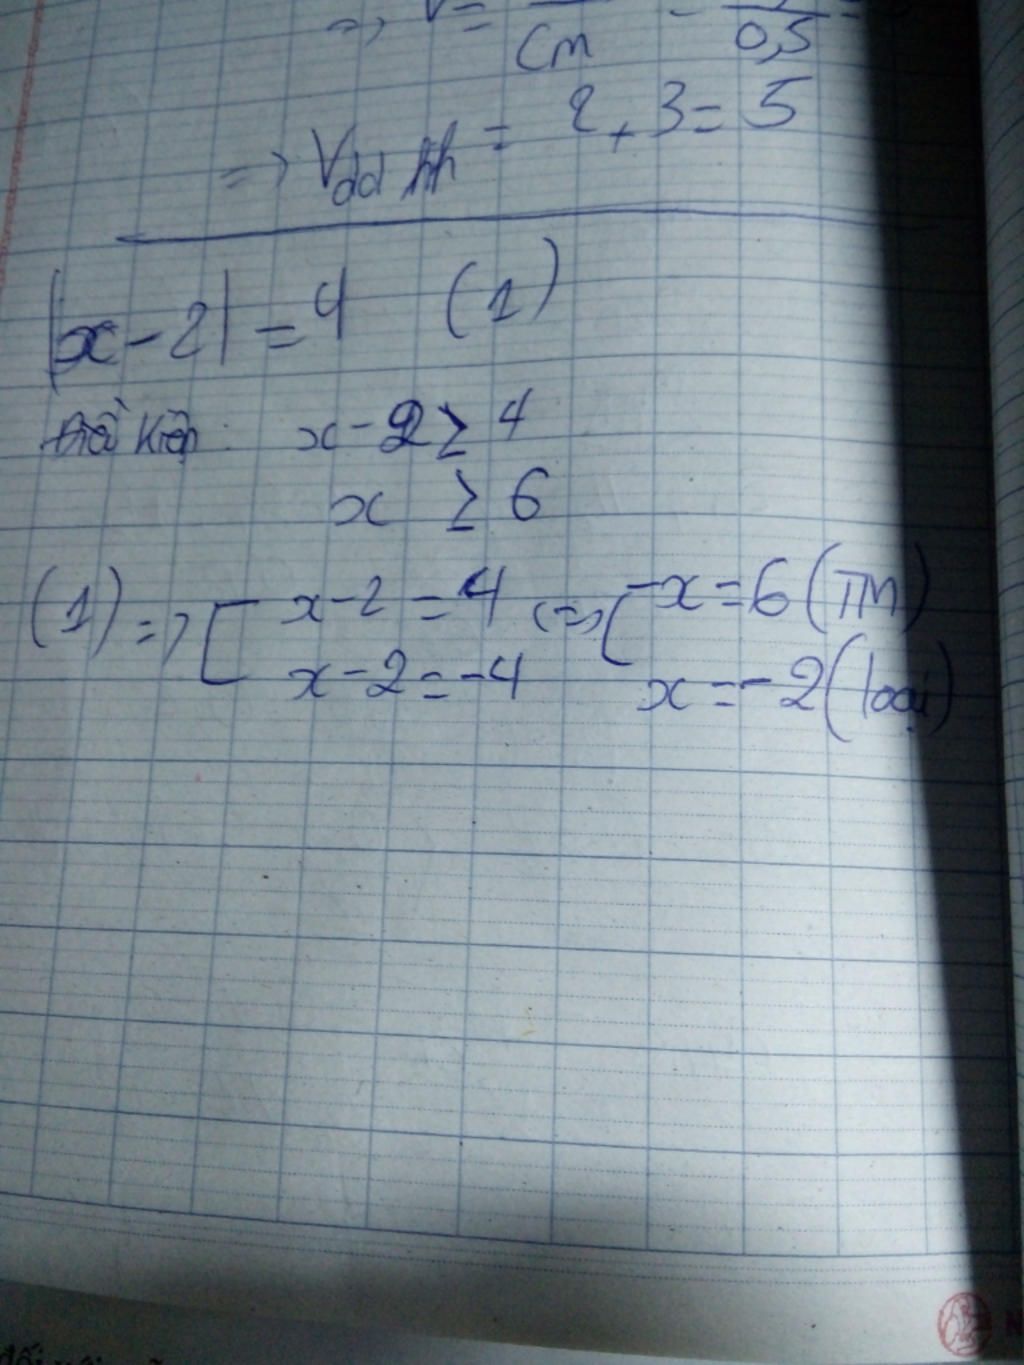 => V =
Cm 0,5
=> Vdd hh = 2 + 3 = 5
|x - 2| = 4 (1)
Điề Kiện: x - 2 ≥ 4
x ≥ 6
(1) => [ x - 2 = 4 <=> [ x = 6 (TM)
x - 2 = -4 x = -2 (loại)